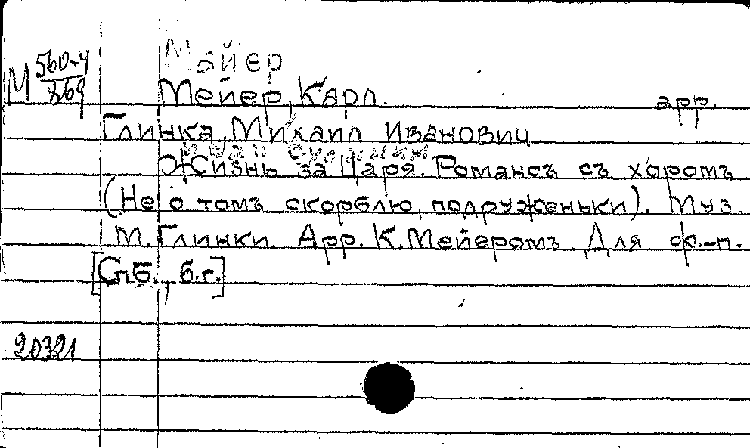 Майер
М 560-4/869
Мейер, Карл. арр.
Глинка, Михаил Иванович
Жизнь за Царя. Романсъ съ хоромъ
(Не о томъ скорблю, подруженьки). Муз.
М. Глинки. Арр. К. Мейеромъ. Для ф.-п.
[Спб., б.г.]
20321